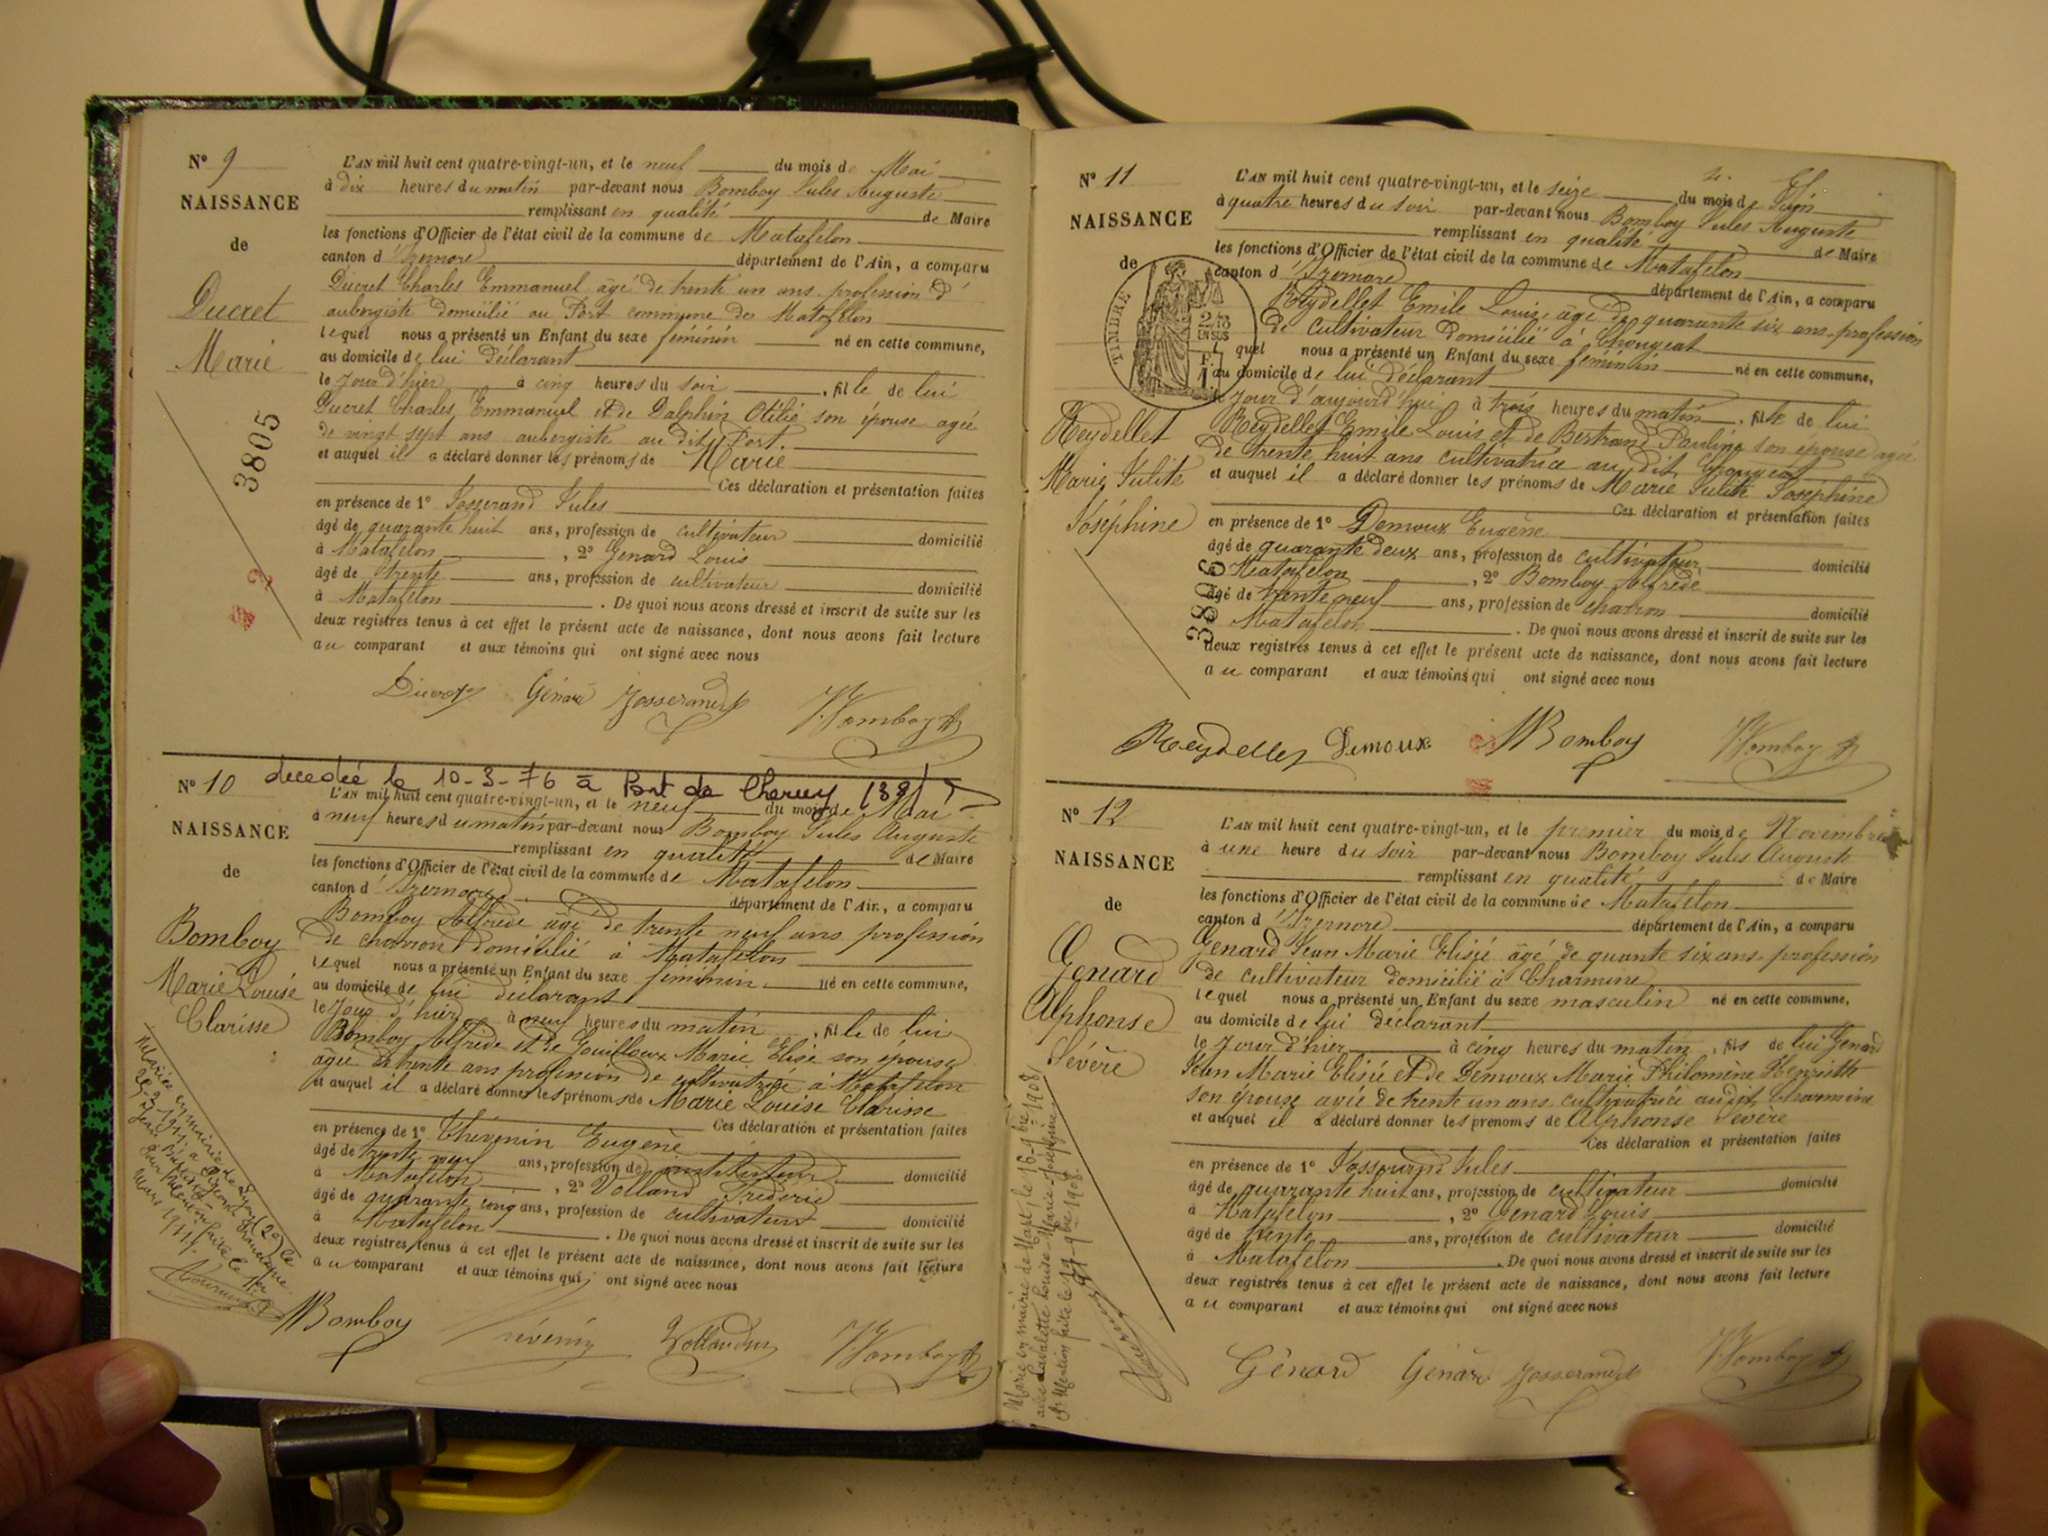 N° 9
NAISSANCE
de
Ducret
Marie
3805
L'AN mil huit cent quatre-vingt-un, et le neuf du mois de Mai
à dix heures du matin par-devant nous Bomboy Jules Auguste
remplissant en qualité de Maire
les fonctions d'Officier de l'état civil de la commune de Matafelon
canton d'Izernore département de l'Ain, a comparu
Ducret Charles Emmanuel âgé de trente un ans profession d'
aubergiste domicilié au Port commune de Matafelon
lequel nous a présenté un Enfant du sexe féminin né en cette commune,
au domicile de lui déclarant
le jour d'hier à cinq heures du soir, fille de lui
Ducret Charles Emmanuel et de Dalphin Otilie son épouse agée
de vingt sept ans aubergiste au dit Port
et auquel il a déclaré donner les prénoms de Marie
Ces déclaration et présentation faites
en présence de 1° Josserand Jules
âgé de quarante huit ans, profession de cultivateur domicilié
à Matafelon, 2° Genard Louis
âgé de trente ans, profession de cultivateur domicilié
à Matafelon. De quoi nous avons dressé et inscrit de suite sur les
deux registres tenus à cet effet le présent acte de naissance, dont nous avons fait lecture
au comparant et aux témoins qui ont signé avec nous
Ducret Génard Josserand J. Bomboy
N° 10
décédée le 10-3-76 à Pont de Cheruy (38)
NAISSANCE
de
Bomboy
Marie Louise
Clarisse
L'AN mil huit cent quatre-vingt-un, et le neuf du mois de Mai
à neuf heures du matin par-devant nous Bomboy Jules Auguste
remplissant en qualité de Maire
les fonctions d'Officier de l'état civil de la commune de Matafelon
canton d'Izernore département de l'Ain, a comparu
Bomboy Alfrède âgé de trente neuf ans profession
de charron domicilié à Matafelon
lequel nous a présenté un Enfant du sexe féminin né en cette commune,
au domicile de lui déclarant
le jour d'hier à neuf heures du matin, fille de lui
Bomboy Alfrède et de Gouilloux Marie Elise son épouse
âgée de trente ans profession de cultivatrice à Matafelon
et auquel il a déclaré donner les prénoms de Marie Louise Clarisse
Ces déclaration et présentation faites
en présence de 1° Thévenin Eugène
âgé de trente neuf ans, profession de instituteur domicilié
à Matafelon, 2° Volland Frédéric
âgé de quarante cinq ans, profession de cultivateur domicilié
à Matafelon. De quoi nous avons dressé et inscrit de suite sur les
deux registres tenus à cet effet le présent acte de naissance, dont nous avons fait lecture
au comparant et aux témoins qui ont signé avec nous
Mariée en mairie de Lyon (2e) le
Mars 1911.
Bomboy Thévenin Volland J. Bomboy
N° 11
NAISSANCE
de
TIMBRE
Reydellet
Marie Julite
Joséphine
3806
L'AN mil huit cent quatre-vingt-un, et le seize du mois de Juin
à quatre heures du soir par-devant nous Bomboy Jules Auguste
remplissant en qualité de Maire
les fonctions d'Officier de l'état civil de la commune de Matafelon
canton d'Izernore département de l'Ain, a comparu
Reydellet Emile Louis âgé de quarante six ans profession
de cultivateur domicilié à Chougeat
quel nous a présenté un Enfant du sexe féminin né en cette commune,
au domicile de lui déclarant
jour d'aujourd'hui à trois heures du matin, fille de lui
Reydellet Emile Louis et de Bertrand Pauline son épouse agée
de trente huit ans cultivatrice au dit Chougeat
et auquel il a déclaré donner les prénoms de Marie Julite Joséphine
Ces déclaration et présentation faites
en présence de 1° Demoux Eugène
âgé de quarante deux ans, profession de cultivateur domicilié
Matafelon, 2° Bomboy Alfrède
âgé de trente neuf ans, profession de charron domicilié
Matafelon. De quoi nous avons dressé et inscrit de suite sur les
deux registres tenus à cet effet le présent acte de naissance, dont nous avons fait lecture
au comparant et aux témoins qui ont signé avec nous
Reydellet Demoux Bomboy J. Bomboy
N° 12
NAISSANCE
de
Genard
Alphonse
Sévère
L'AN mil huit cent quatre-vingt-un, et le premier du mois de Novembre
à une heure du soir par-devant nous Bomboy Jules Auguste
remplissant en qualité de Maire
les fonctions d'Officier de l'état civil de la commune de Matafelon
canton d'Izernore département de l'Ain, a comparu
Genard Jean Marie Elisié âgé de quante six ans profession
de cultivateur domicilié à Charmine
lequel nous a présenté un Enfant du sexe masculin né en cette commune,
au domicile de lui déclarant
le jour d'hier à cinq heures du matin, fils de lui Genard
Jean Marie Elisié et de Demoux Marie Philomène Henriette
son épouse agée de trente un ans cultivatrice au dit Charmine
et auquel il a déclaré donner les prénoms de Alphonse Sévère
Ces déclaration et présentation faites
en présence de 1° Josserand Jules
âgé de quarante huit ans, profession de cultivateur domicilié
à Matafelon, 2° Genard Louis
âgé de trente ans, profession de cultivateur domicilié
à Matafelon. De quoi nous avons dressé et inscrit de suite sur les
deux registres tenus à cet effet le présent acte de naissance, dont nous avons fait lecture
au comparant et aux témoins qui ont signé avec nous
Marié en mairie de le 16-9bre 1908
avec Lavalette Louise-Marie-Joséphine
Mention faite le 19-9bre 1908.
Génard Génard Josserand J. Bomboy